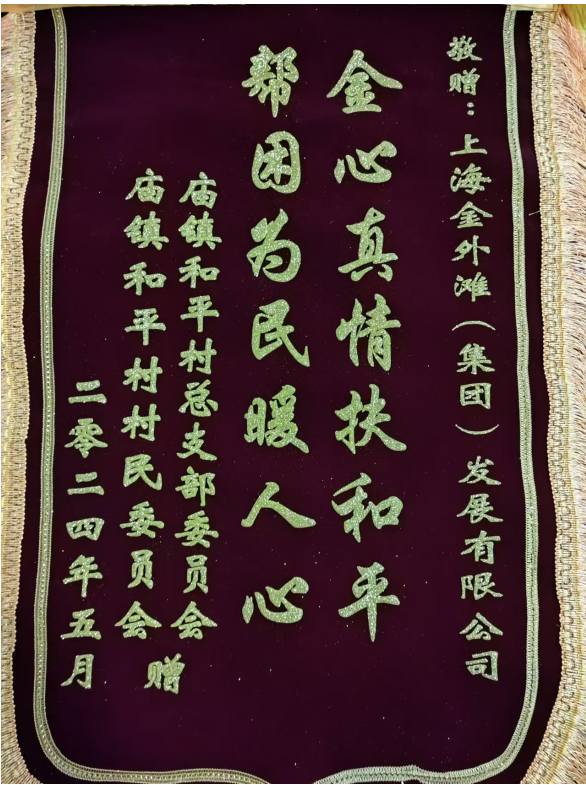 敬赠：上海金外滩（集团）发展有限公司
金心真情扶和平
帮困为民暖人心
庙镇和平村总支部委员会
庙镇和平村村民委员会
赠
二零二四年五月